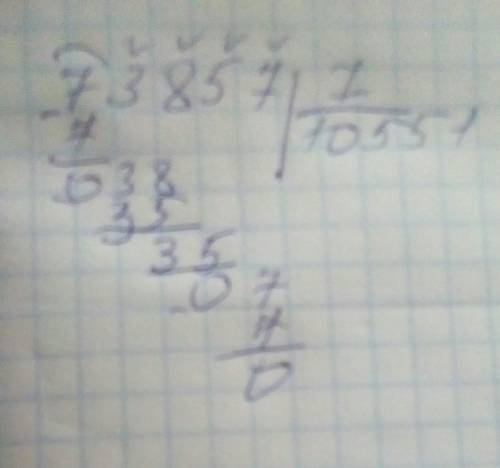 73857 7
-7 10551
038
35
35
-07
7
0